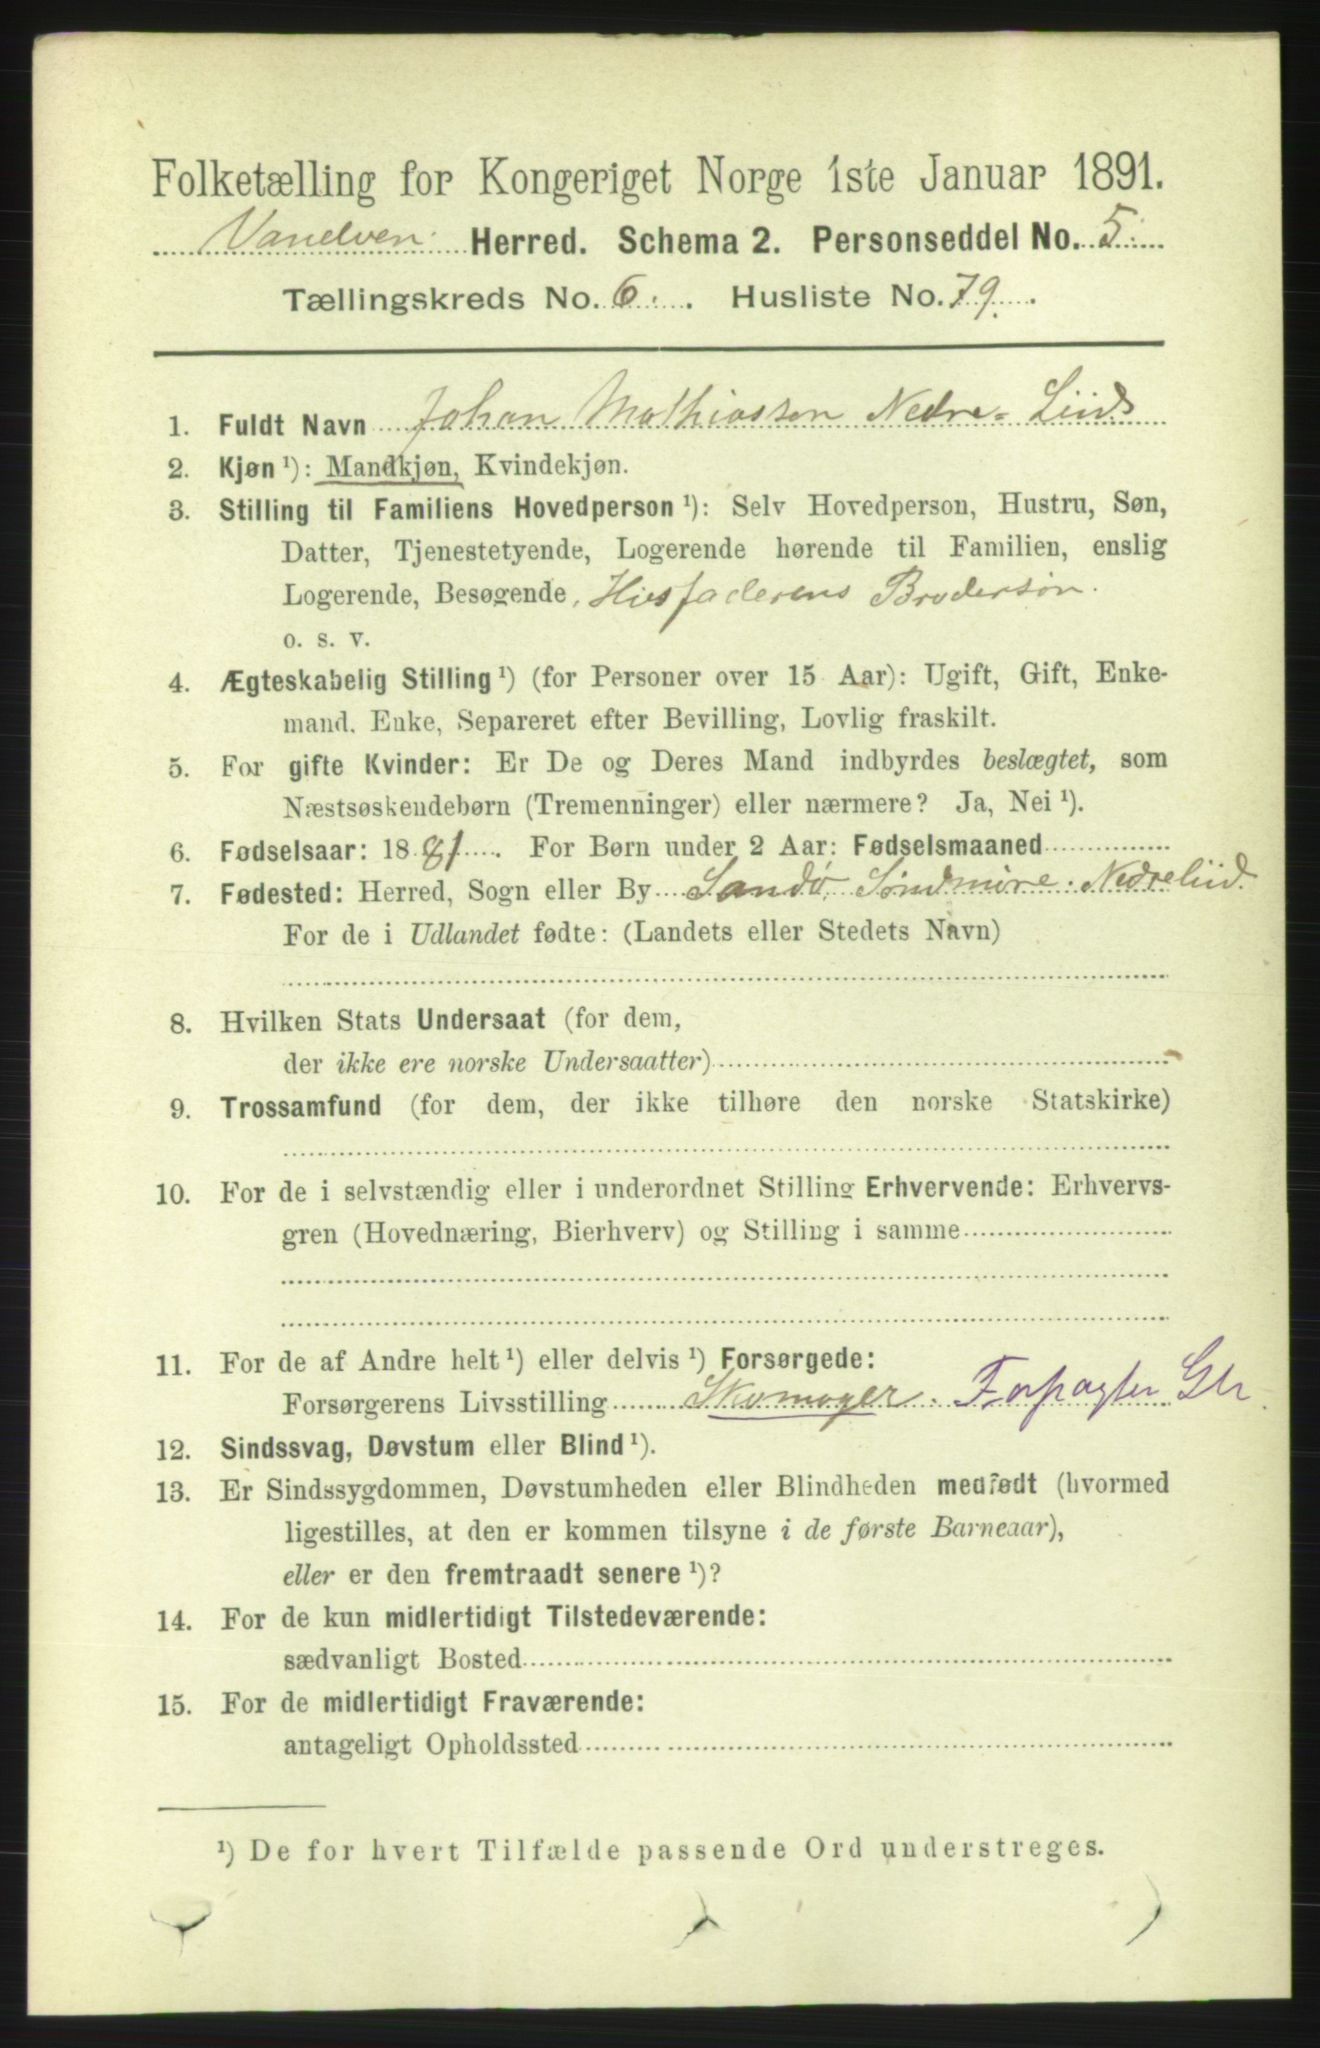 Folketælling for Kongeriget Norge 1ste Januar 1891.
Vanelven Herred. Schema 2. Personseddel No. 5.
Tællingskreds No. 6. Husliste No. 79.
1. Fuldt Navn Johan Mathiassen Nedre-Liid
2. Kjøn ¹): Mandkjøn, Kvindekjøn.
3. Stilling til Familiens Hovedperson ¹): Selv Hovedperson, Hustru, Søn,
Datter, Tjenestetyende, Logerende hørende til Familien, enslig
Logerende, Besøgende, Husfaderens Brodersøn.
o. s. v.
4. Ægteskabelig Stilling ¹) (for Personer over 15 Aar): Ugift, Gift, Enke-
mand, Enke, Separeret efter Bevilling, Lovlig fraskilt.
5. For gifte Kvinder: Er De og Deres Mand indbyrdes beslægtet, som
Næstsøskendebørn (Tremenninger) eller nærmere? Ja, Nei ¹).
6. Fødselsaar: 1881. For Børn under 2 Aar: Fødselsmaaned
7. Fødested: Herred, Sogn eller By Sandø, Søndmøre. Nedreliid
For de i Udlandet fødte: (Landets eller Stedets Navn)
8. Hvilken Stats Undersaat (for dem,
der ikke ere norske Undersaatter)
9. Trossamfund (for dem, der ikke tilhøre den norske Statskirke)
10. For de i selvstændig eller i underordnet Stilling Erhvervende: Erhvervs-
gren (Hovednæring, Bierhverv) og Stilling i samme
11. For de af Andre helt ¹) eller delvis ¹) Forsørgede:
Forsørgerens Livsstilling Skomager. Forpagter
12. Sindssvag, Døvstum eller Blind ¹).
13. Er Sindssygdommen, Døvstumheden eller Blindheden medfødt (hvormed
ligestilles, at den er kommen tilsyne i de første Barneaar),
eller er den fremtraadt senere ¹)?
14. For de kun midlertidigt Tilstedeværende:
sædvanligt Bosted
15. For de midlertidigt Fraværende:
antageligt Opholdssted
¹) De for hvert Tilfælde passende Ord understreges.